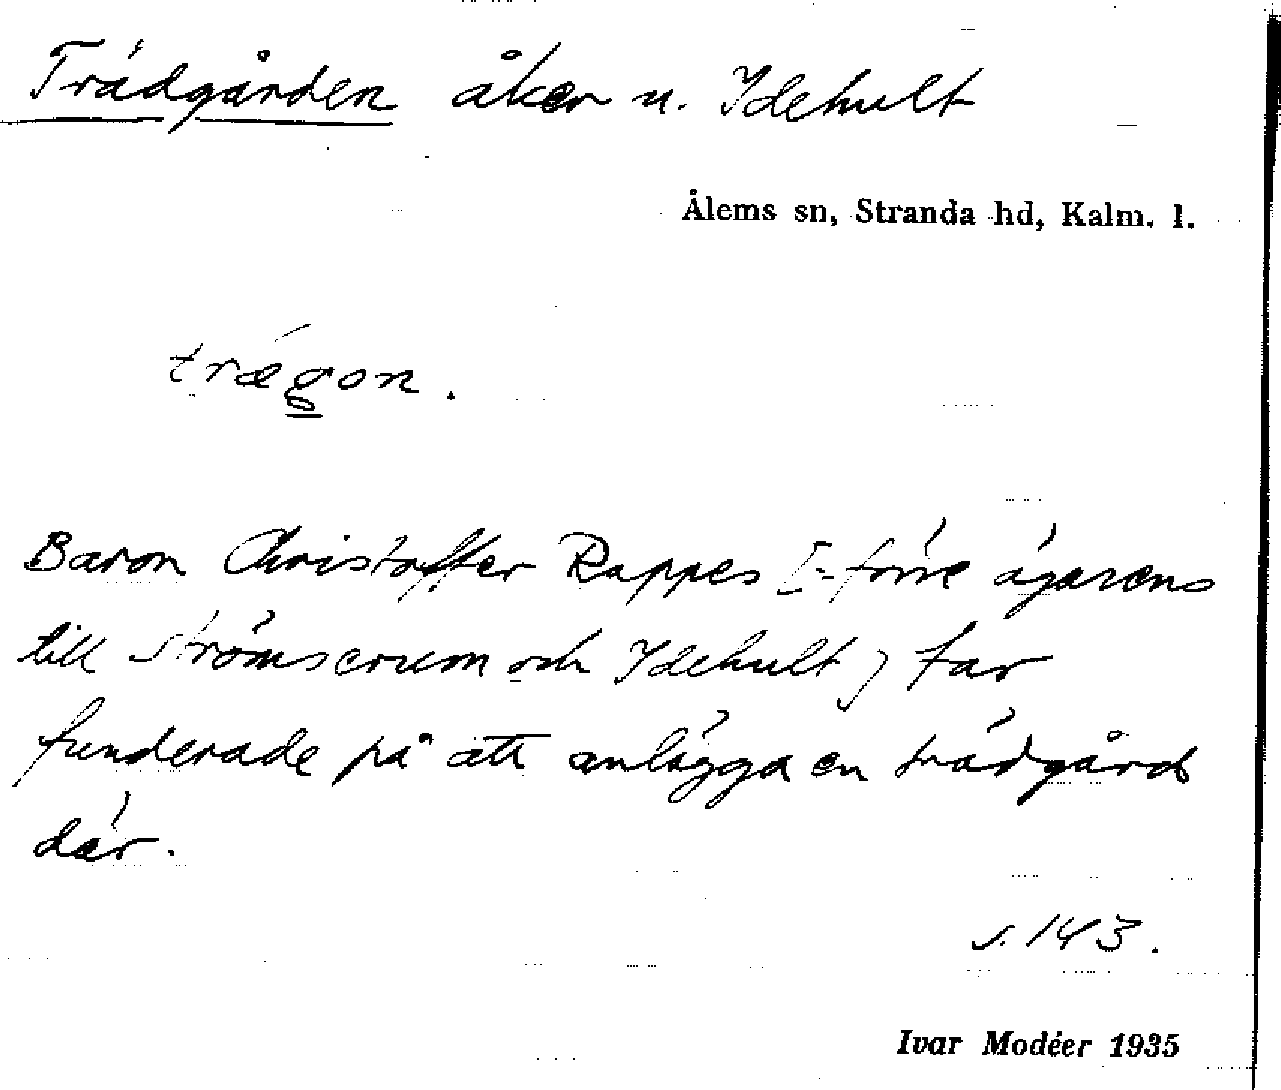 Trädgården åker u. Idehult
Ålems sn, Stranda hd, Kalm. l.
trǽgon.
Baron Christoffer Rappes [= förre ägarens
till Strömserum och Idehult) far
funderade på att anlägga en trädgård
där.
s. 143.
Ivar Modéer 1935